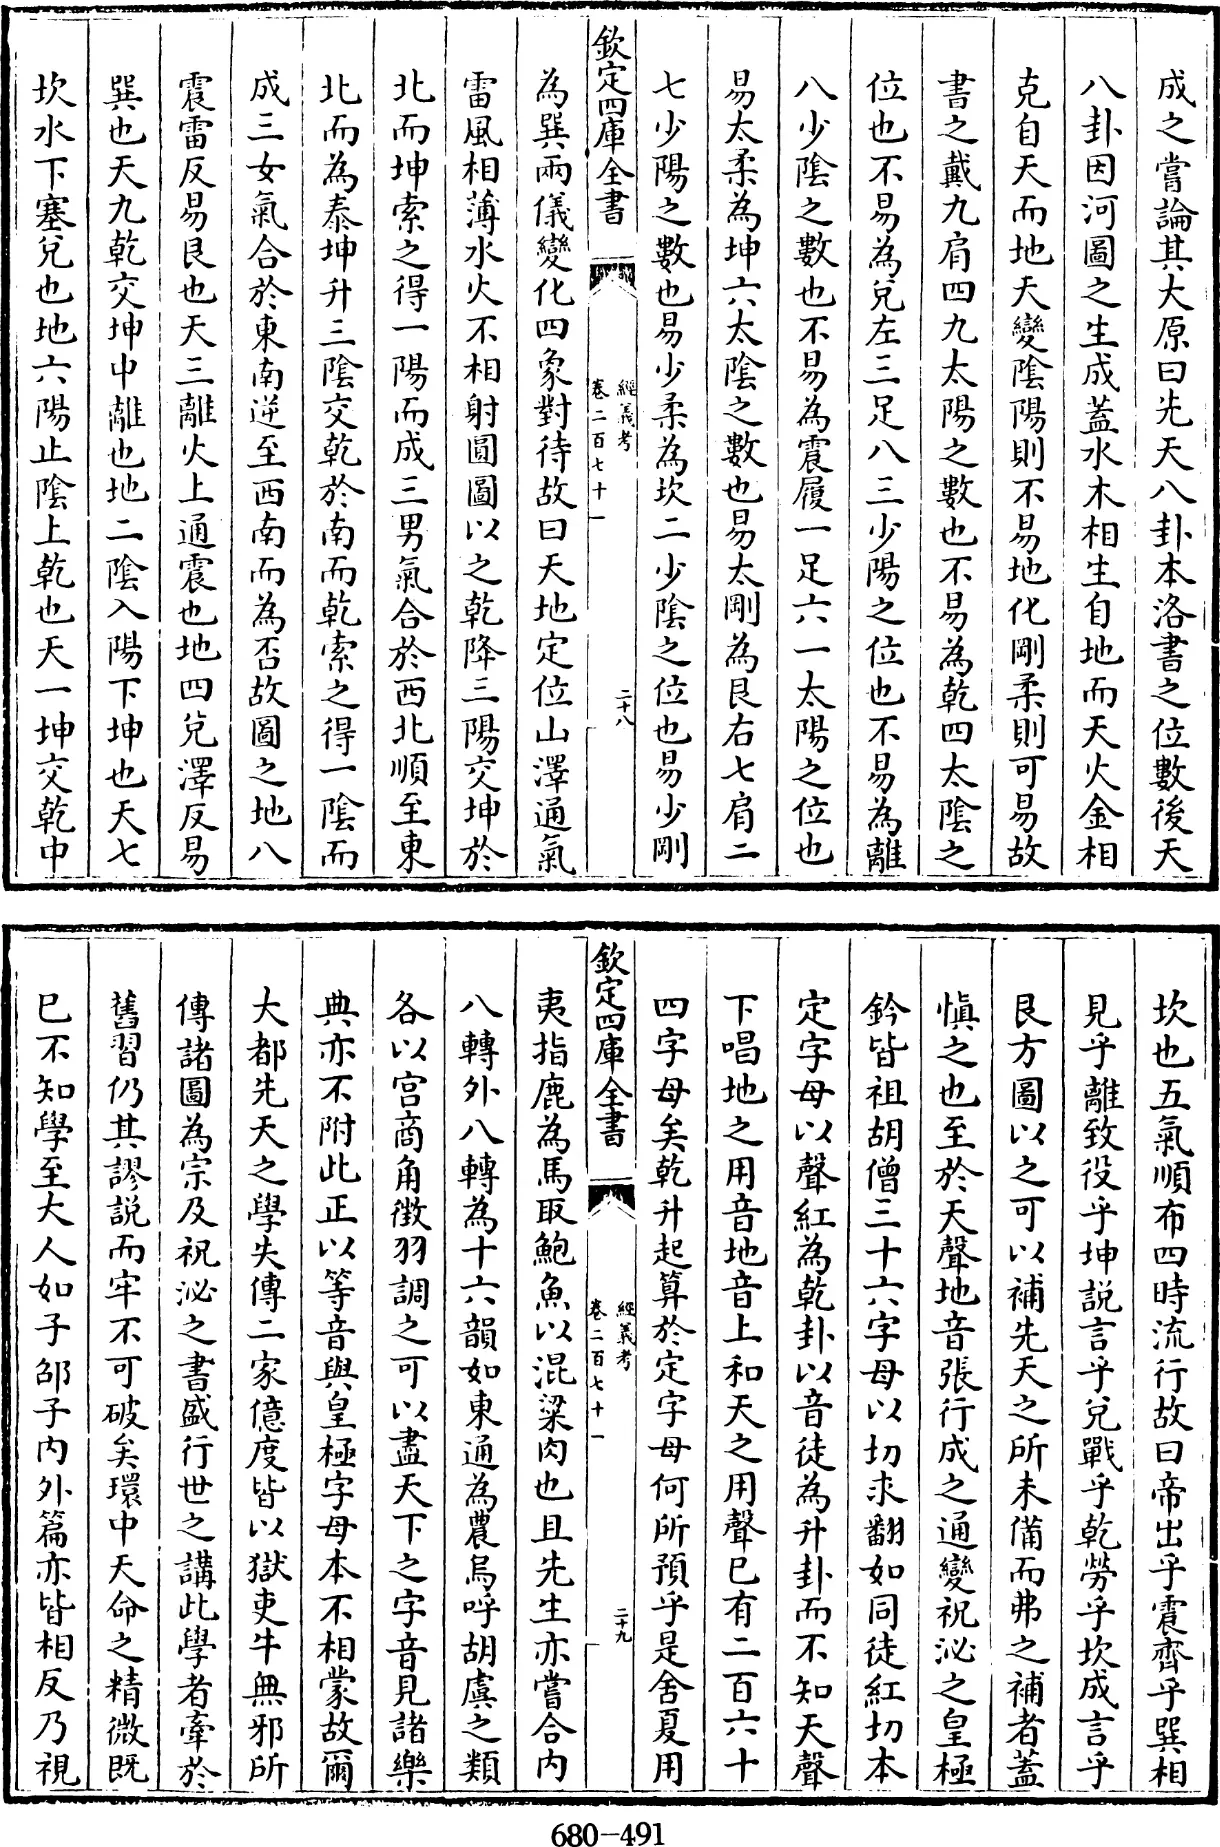 成之嘗論其大原曰先天八卦本洛書之位數後天
八卦因河圖之生成蓋水木相生自地而天火金相
克自天而地天變陰陽則不易地化剛柔則可易故
書之戴九肩四九太陽之數也不易為乾四太陰之
位也不易為兌左三足八三少陽之位也不易為離
八少陰之數也不易為震履一足六一太陽之位也
易太柔為坤六太陰之數也易太剛為艮右七肩二
七少陽之數也易少柔為坎二少陰之位也易少剛
欽定四庫全書
經義考
卷二百七十一
二十八
為巽兩儀變化四象對待故曰天地定位山澤通氣
雷風相薄水火不相射圓圖以之乾降三陽交坤於
北而坤索之得一陽而成三男氣合於西北順至東
北而為泰坤升三陰交乾於南而乾索之得一陰而
成三女氣合於東南逆至西南而為否故圖之地八
震雷反易艮也天三離火上通震也地四兌澤反易
巽也天九乾交坤中離也地二陰入陽下坤也天七
坎水下塞兌也地六陽止陰上乾也天一坤交乾中
坎也五氣順布四時流行故曰帝出乎震齊乎巽相
見乎離致役乎坤說言乎兌戰乎乾勞乎坎成言乎
艮方圖以之可以補先天之所未備而弗之補者蓋
慎之也至於天聲地音張行成之通變祝泌之皇極
鈐皆祖胡僧三十六字母以切求翻如同徒紅切本
定字母以聲紅為乾卦以音徒為升卦而不知天聲
下唱地之用音地音上和天之用聲已有二百六十
四字母矣乾升起算於定字母何所預乎是舍夏用
欽定四庫全書
經義考
卷二百七十一
二十九
夷指鹿為馬取鮑魚以混粱肉也且先生亦嘗合內
八轉外八轉為十六韻如東通為農烏呼胡虞之類
各以宮商角徵羽調之可以盡天下之字音見諸樂
典亦不附此正以等音與皇極字母本不相蒙故爾
大都先天之學失傳二家億度皆以獄吏牛無邪所
傳諸圖為宗及祝泌之書盛行世之講此學者牽於
舊習仍其謬說而牢不可破矣環中天命之精微既
已不知學至大人如子邵子內外篇亦皆相反乃視
680-491